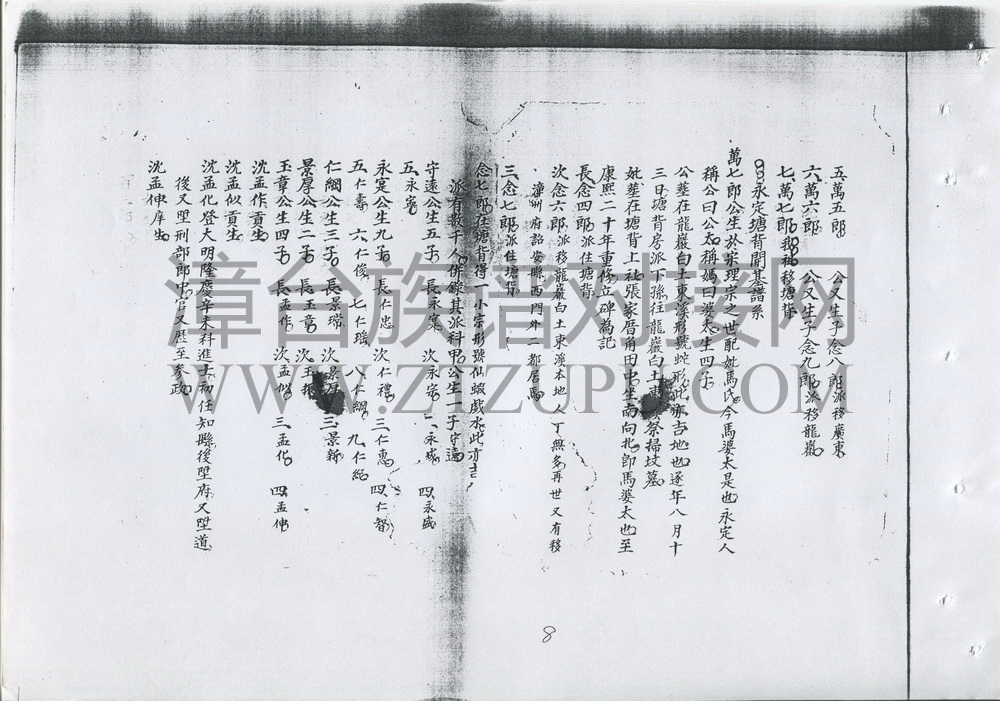 五、萬五郎 公又生子念八郎派移廣東
六、萬六郎 公又生子念九郎派移龍巖
七、萬七郎 移塘背
永定塘背開基譜系
萬七郎公生於宗理宗之世配妣馬氏今馬婆太是也永定人
稱公曰公太稱媽曰婆太生四子
公塟在龍巖白土東溪形號蛇形此亦吉地也逐年八月十
三日塘背房派下孫往龍巖白土 祭掃坟墓
妣塟在塘背上社張家厝角田中坐南向北即馬婆太也至
康熙二十年重修立碑為記
長念四郎派住塘背
次念六郎派移龍巖白土東溪本地人丁無多再世又有移
漳州府詔安縣西門外二都居焉
三、念七郎派住塘背
念七郎在塘背得一小宗形號仙蝦戲水此亦吉
派有數千人併錄其派科甲公生一子守遠
守遠公生五子 長永寧 次永安 三永成 四永盛
五、永寧
永寔公生九子 長仁忠 次仁禮 三仁惠 四仁智
五仁壽 六仁俊 七仁瑶 八仁綱 九仁紀
仁綱公生三子 長景瑺 次景厚 三景新
景厚公生二子 長玉章 次玉振
玉章公生四子 長孟作 次孟似 三孟化 四孟伸
沈孟作貢生
沈孟似貢生
沈孟化登大明隆慶辛未科進士初任知縣後陞府又陞道
後又陞刑部郎中官又歷至參政
沈孟伸庠生
8
漳台族谱对接网
WWW.ZTZUPU.COM